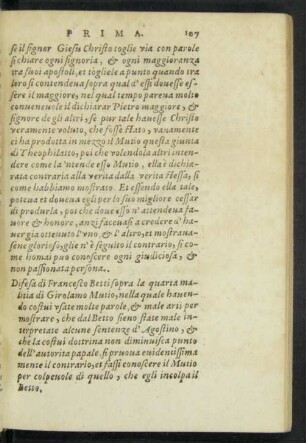 PRIMA. 107
se il signor Giesu Christo toglie via con parole
si chiare ogni signoria, & ogni maggioranza
tra suoi apostoli, et tògliele a punto quando tra
loro si contendeua sopra qual d'essi douesse es-
sere il maggiore, nel qual tempo pareua molto
conueneuole il dichiarar Pietro maggiore, &
signore de gli altri, se pur tale hauesse Christo
veramente voluto, che fosse stato, vanamente
ci ha prodotta in mezzo il Mutio questa giunta
di Theophilatto, poi che volendola altri inten-
dere come la'ntende esso Mutio, ella è dichia-
rata contraria alla verità dalla verità stessa, si
come habbiamo mostrato. Et essendo ella tale,
poteua et doueua egli per lo suo migliore cessar
di produrla, poi che doue esso n'attendeua fa-
uore & honore, anzi faceuasi a credere d'ha-
uer già ottenuto l'vno, & l'altro, et mostrana-
sene glorioso, glie n'è seguito il contrario, si co
me homai puo conoscere ogni giudiciosa, &
non passionata persona.
Difesa di Francesco Betti sopra la quarta ma
litia di Girolamo Mutio, nella quale hauen-
do costui vsate molte parole, & male arti per
mostrare, che dal Betto sieno state male in-
terpretate alcune sentenze d'Agostino, &
che la costui dottrina non diminuisca punto
dell'autorità papale. si pruoua euidentissima
mente il contrario, et fassi conoscere il Mutio
per colpeuole di quello, che egli incolpa il
Betto.